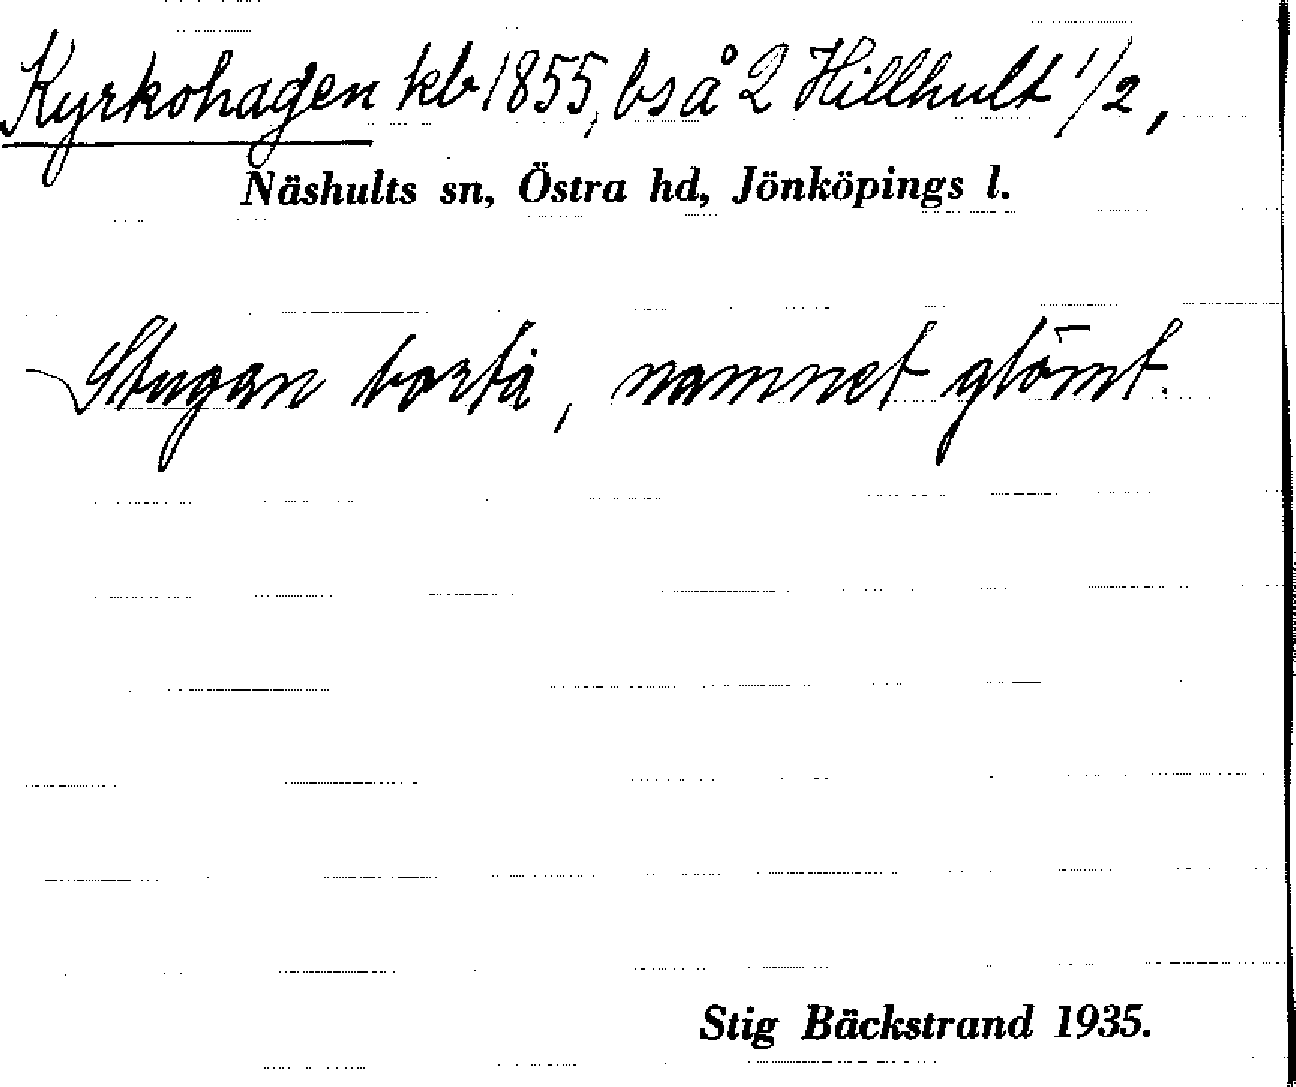 Kyrkohagen kb 1855, bs å 2 Hillhult 1/2,
Näshults sn, Östra hd, Jönköpings l.
Stugan borta, namnet glömt.
Stig Bäckstrand 1935.